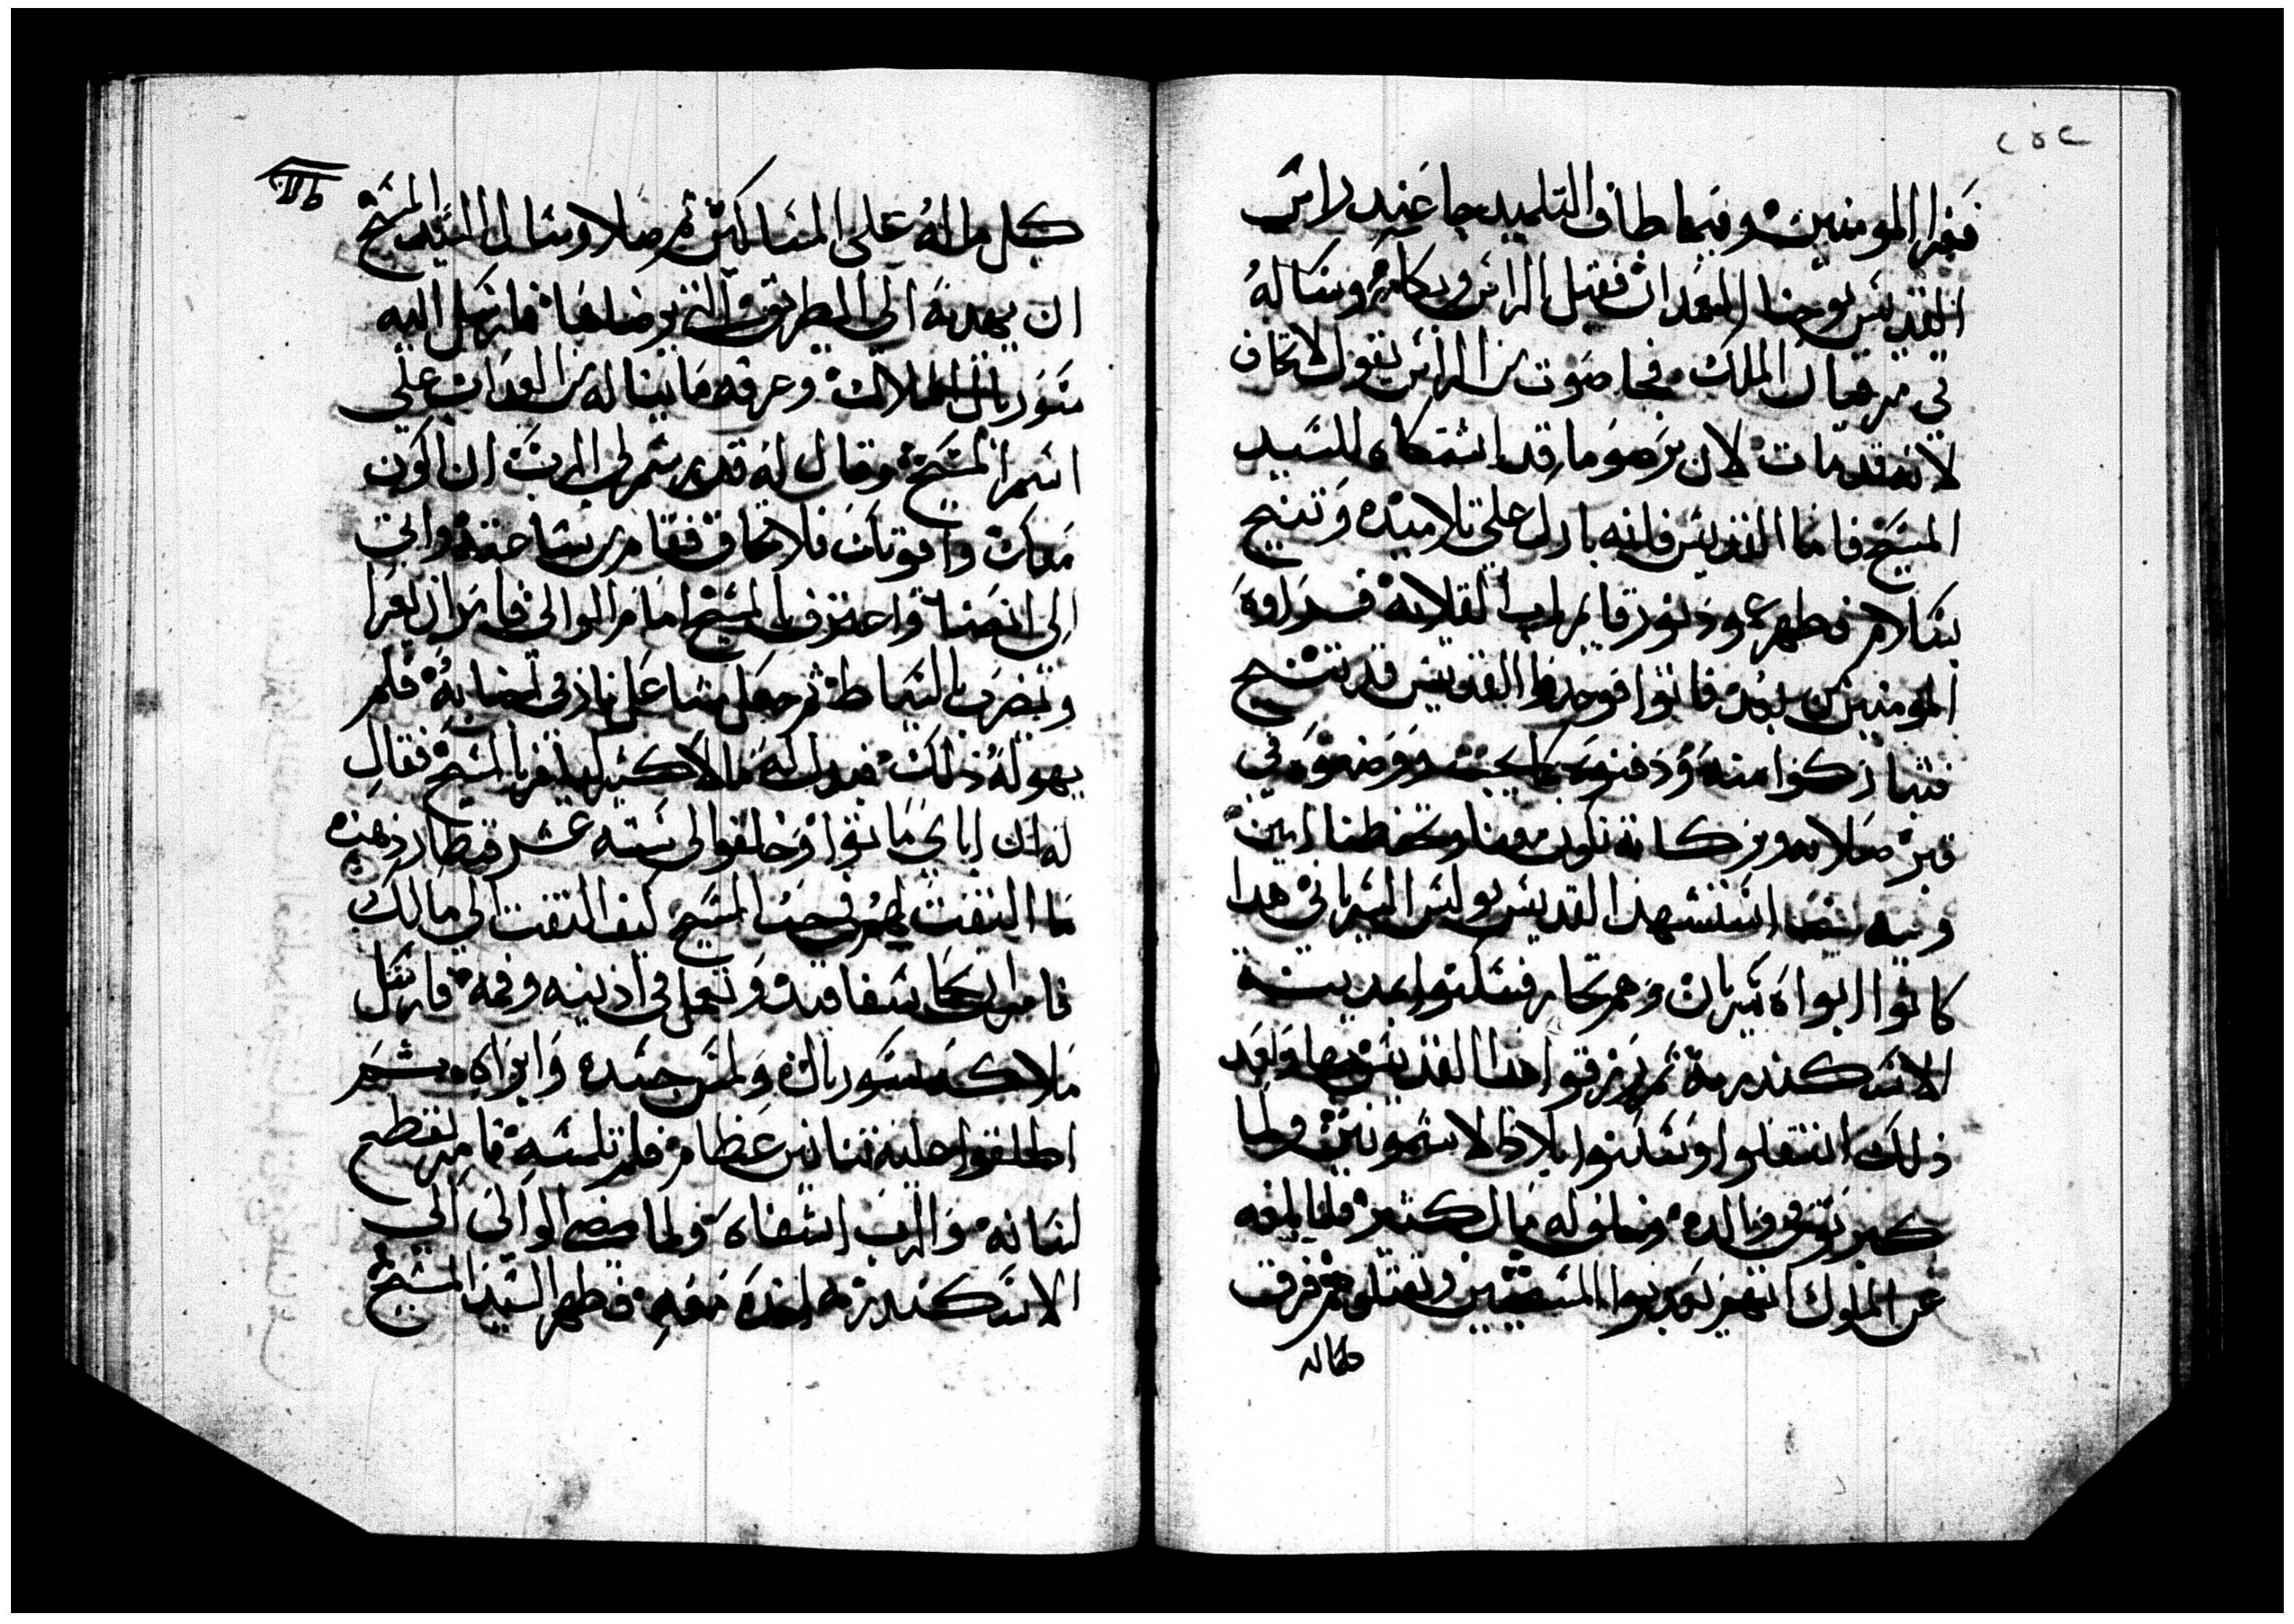 ٢٥٢
فقرا المومنين وفيما طاف التلميد جا عند راس
القديس يوحنا المعمدان فقبل الراس وبكا وساله
في مرقيان الملك فجا صوت من الراس يقول لا تخاف
لانه قد مات لان برصوما قد اشتكاه للسيد
المسيح فاما القديس فانه بارك على تلاميده وتنيح
بسلام فظهر عمود نور قايم باب القلايه فراوه
المومنين من بعد فاتوا فوجدوا القديس قد تنيح
فتباركوا منه ودفنوه كما يجب ووضعوه في
قبر صلاته وبركاته تكون معنا وتحفظنا امين
وفيه ايضا استشهد القديس بولس السرياني هدا
كانوا ابواه سريان وهم تجار فسكنوا بمدينة
الاسكندرية ثم رزقوا هدا القديس بها وبعد
ذلك انتقلوا وسكنوا بلاد الاشمونين ولما
كبر توفي والده وخلف له مال كثير فلما بلغه
عن الملوك انهم يعدبوا المسيحيين ويقتلوهم فرق
كل ماله على المساكين ثم صلا وسال السيد المسيح
ان يهديه الى الطريق التي يرضاها فارسل اليه
سوريال الملاك وعرفه ما يناله من العداب على
اسم المسيح وقال له قد رسم لي الرب ان اكون
معك واقويك فلا تخاف فقام من ساعته واتى
الى انصنا واعترف بالمسيح امام الوالي فامر ان يعرا
ويضرب بالسياط ثم جعل مشاعل نار في اجنابه فلم
يهوله ذلك فبدل له مالا كثير ليكفر بالمسيح فقال
له ان اباي ماتوا وخلفوا لي سته عشر قنطار ذهب
ما التفت لهم في حب المسيح كيف التفت الى مالك
فامر ان يحما سفافيد وتجعل في اذنيه وفمه فارسل
ملاكه سوريال ولمس جسده وابراه ثم
اطلقوا عليه تنانين عظام فلم تلمسه فامر بقطع
لسانه والرب اشفاه ولما مضى الوالي الى
الاسكندرية اخده معه فظهر السيد المسيح